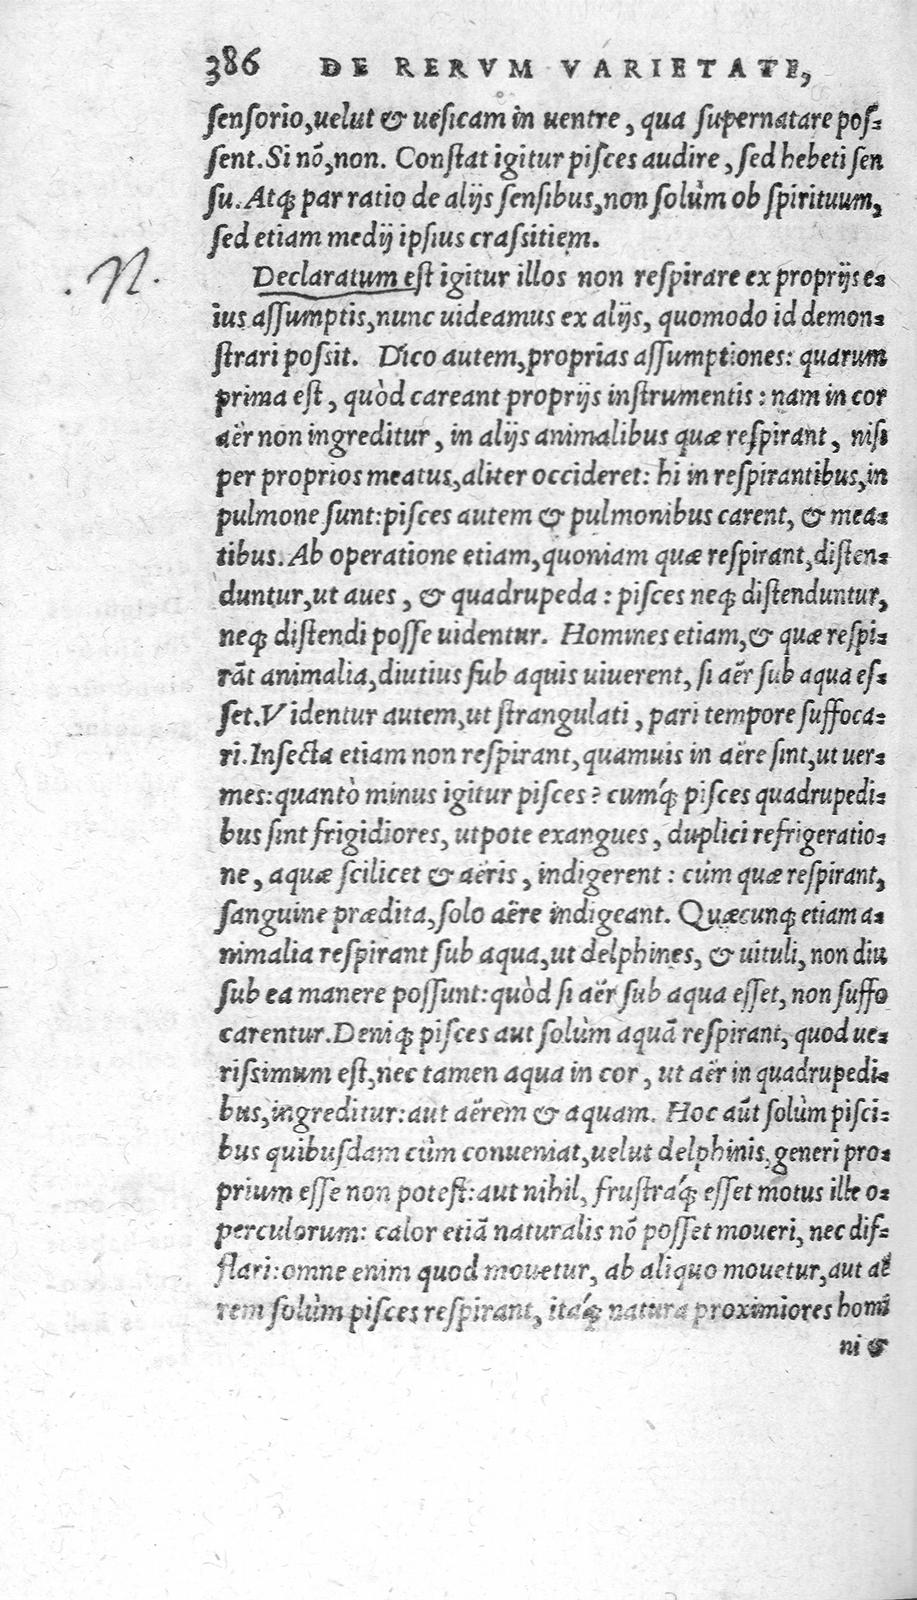 386 DE RERVM VARIETATE,
ſenſorio, uelut & ueſicam in uentre, qua ſupernatare poſ-
ſent. Si nõ, non. Conſtat igitur piſces audire, ſed hebeti ſen
ſu. Atq; par ratio de alijs ſenſibus, non ſolùm ob ſpirituum,
ſed etiam medij ipſius craſsitiem.
.N.
Declaratum eſt igitur illos non reſpirare ex proprijs e-
ius aſſumptis, nunc uideamus ex alijs, quomodo id demon-
ſtrari poſsit. Dico autem, proprias aſſumptiones: quarum
prima eſt, quòd careant proprijs inſtrumentis: nam in cor
aër non ingreditur, in alijs animalibus quæ reſpirant, niſi
per proprios meatus, aliter occideret: hi in reſpirantibus, in
pulmone ſunt: piſces autem & pulmonibus carent, & mea-
tibus. Ab operatione etiam, quoniam quæ reſpirant, diſten-
duntur, ut aues, & quadrupeda: piſces neq; diſtenduntur,
neq; diſtendi poſſe uidentur. Homines etiam, & quæ reſpi-
rãt animalia, diutius ſub aquis uiuerent, ſi aër ſub aqua eſ-
ſet. Videntur autem, ut ſtrangulati, pari tempore ſuffoca-
ri. Inſecta etiam non reſpirant, quamuis in aëre ſint, ut uer-
mes: quantò minus igitur piſces? cumq́; piſces quadrupedi-
bus ſint frigidiores, utpote exangues, duplici refrigeratio-
ne, aquæ ſcilicet & aëris, indigerent: cùm quæ reſpirant,
ſanguine prædita, ſolo aëre indigeant. Quæcunq; etiam a-
nimalia reſpirant ſub aqua, ut delphines, & uituli, non diu
ſub ea manere poſſunt: quòd ſi aër ſub aqua eſſet, non ſuffo
carentur. Deniq; piſces aut ſolùm aquã reſpirant, quod ue-
riſsimum eſt, nec tamen aqua in cor, ut aër in quadrupedi-
bus, ingreditur: aut aërem & aquam. Hoc aũt ſolùm piſci-
bus quibuſdam cùm conueniat, uelut delphinis, generi pro-
prium eſſe non poteſt: aut nihil, fruſtraq́; eſſet motus ille o-
perculorum: calor etiã naturalis nõ poſſet moueri, nec dif-
flari: omne enim quod mouetur, ab aliquo mouetur, aut aë
rem ſolùm piſces reſpirant, itaq́; natura proximiores homi
ni &